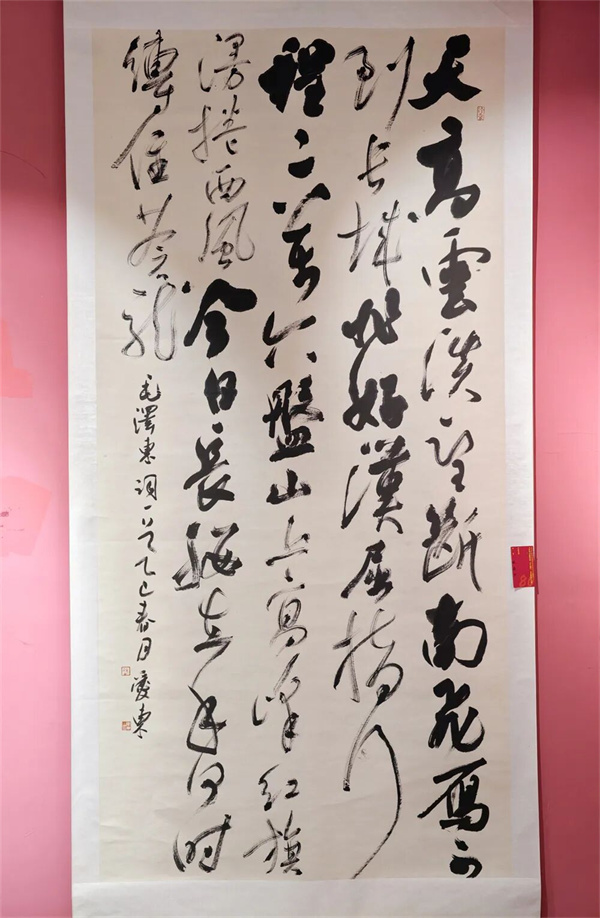 天高雲淡望斷南飛雁不
到长城非好漢屈指行
程二萬六盤山上高峰紅旗
漫捲西風今日長纓在手何时
縛住蒼龍
毛澤東詞一首乙巳春月凌東